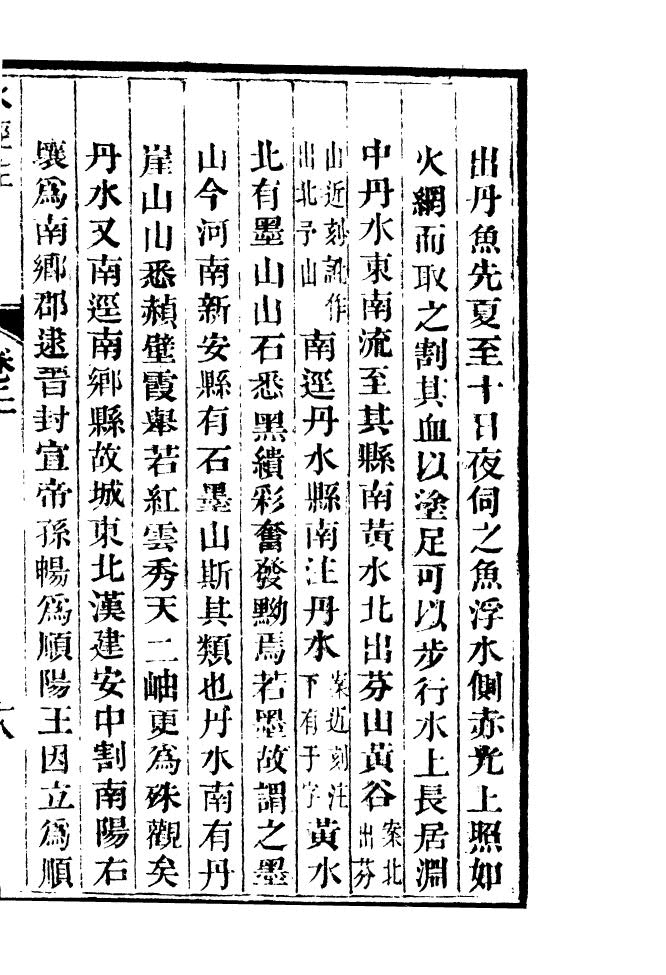 出丹魚先夏至十日夜伺之魚浮水側赤光上照如
火網而取之割其血以塗足可以步行水上長居淵
中丹水東南流至其縣南黃水北出芬山黃谷案北出芬
山近刻訛作出北予山南逕丹水縣南注丹水案近刻注下有于字黃水
北有墨山山石悉黑繢彩奮發黝焉若墨故謂之墨
山今河南新安縣有石墨山斯其類也丹水南有丹
崖山山悉赬壁霞舉若紅雲秀天二岫更為殊觀矣
丹水又南逕南鄉縣故城東北漢建安中割南陽右
壤為南鄉郡逮晉封宣帝孫暢為順陽王因立為順
水經注
卷二十